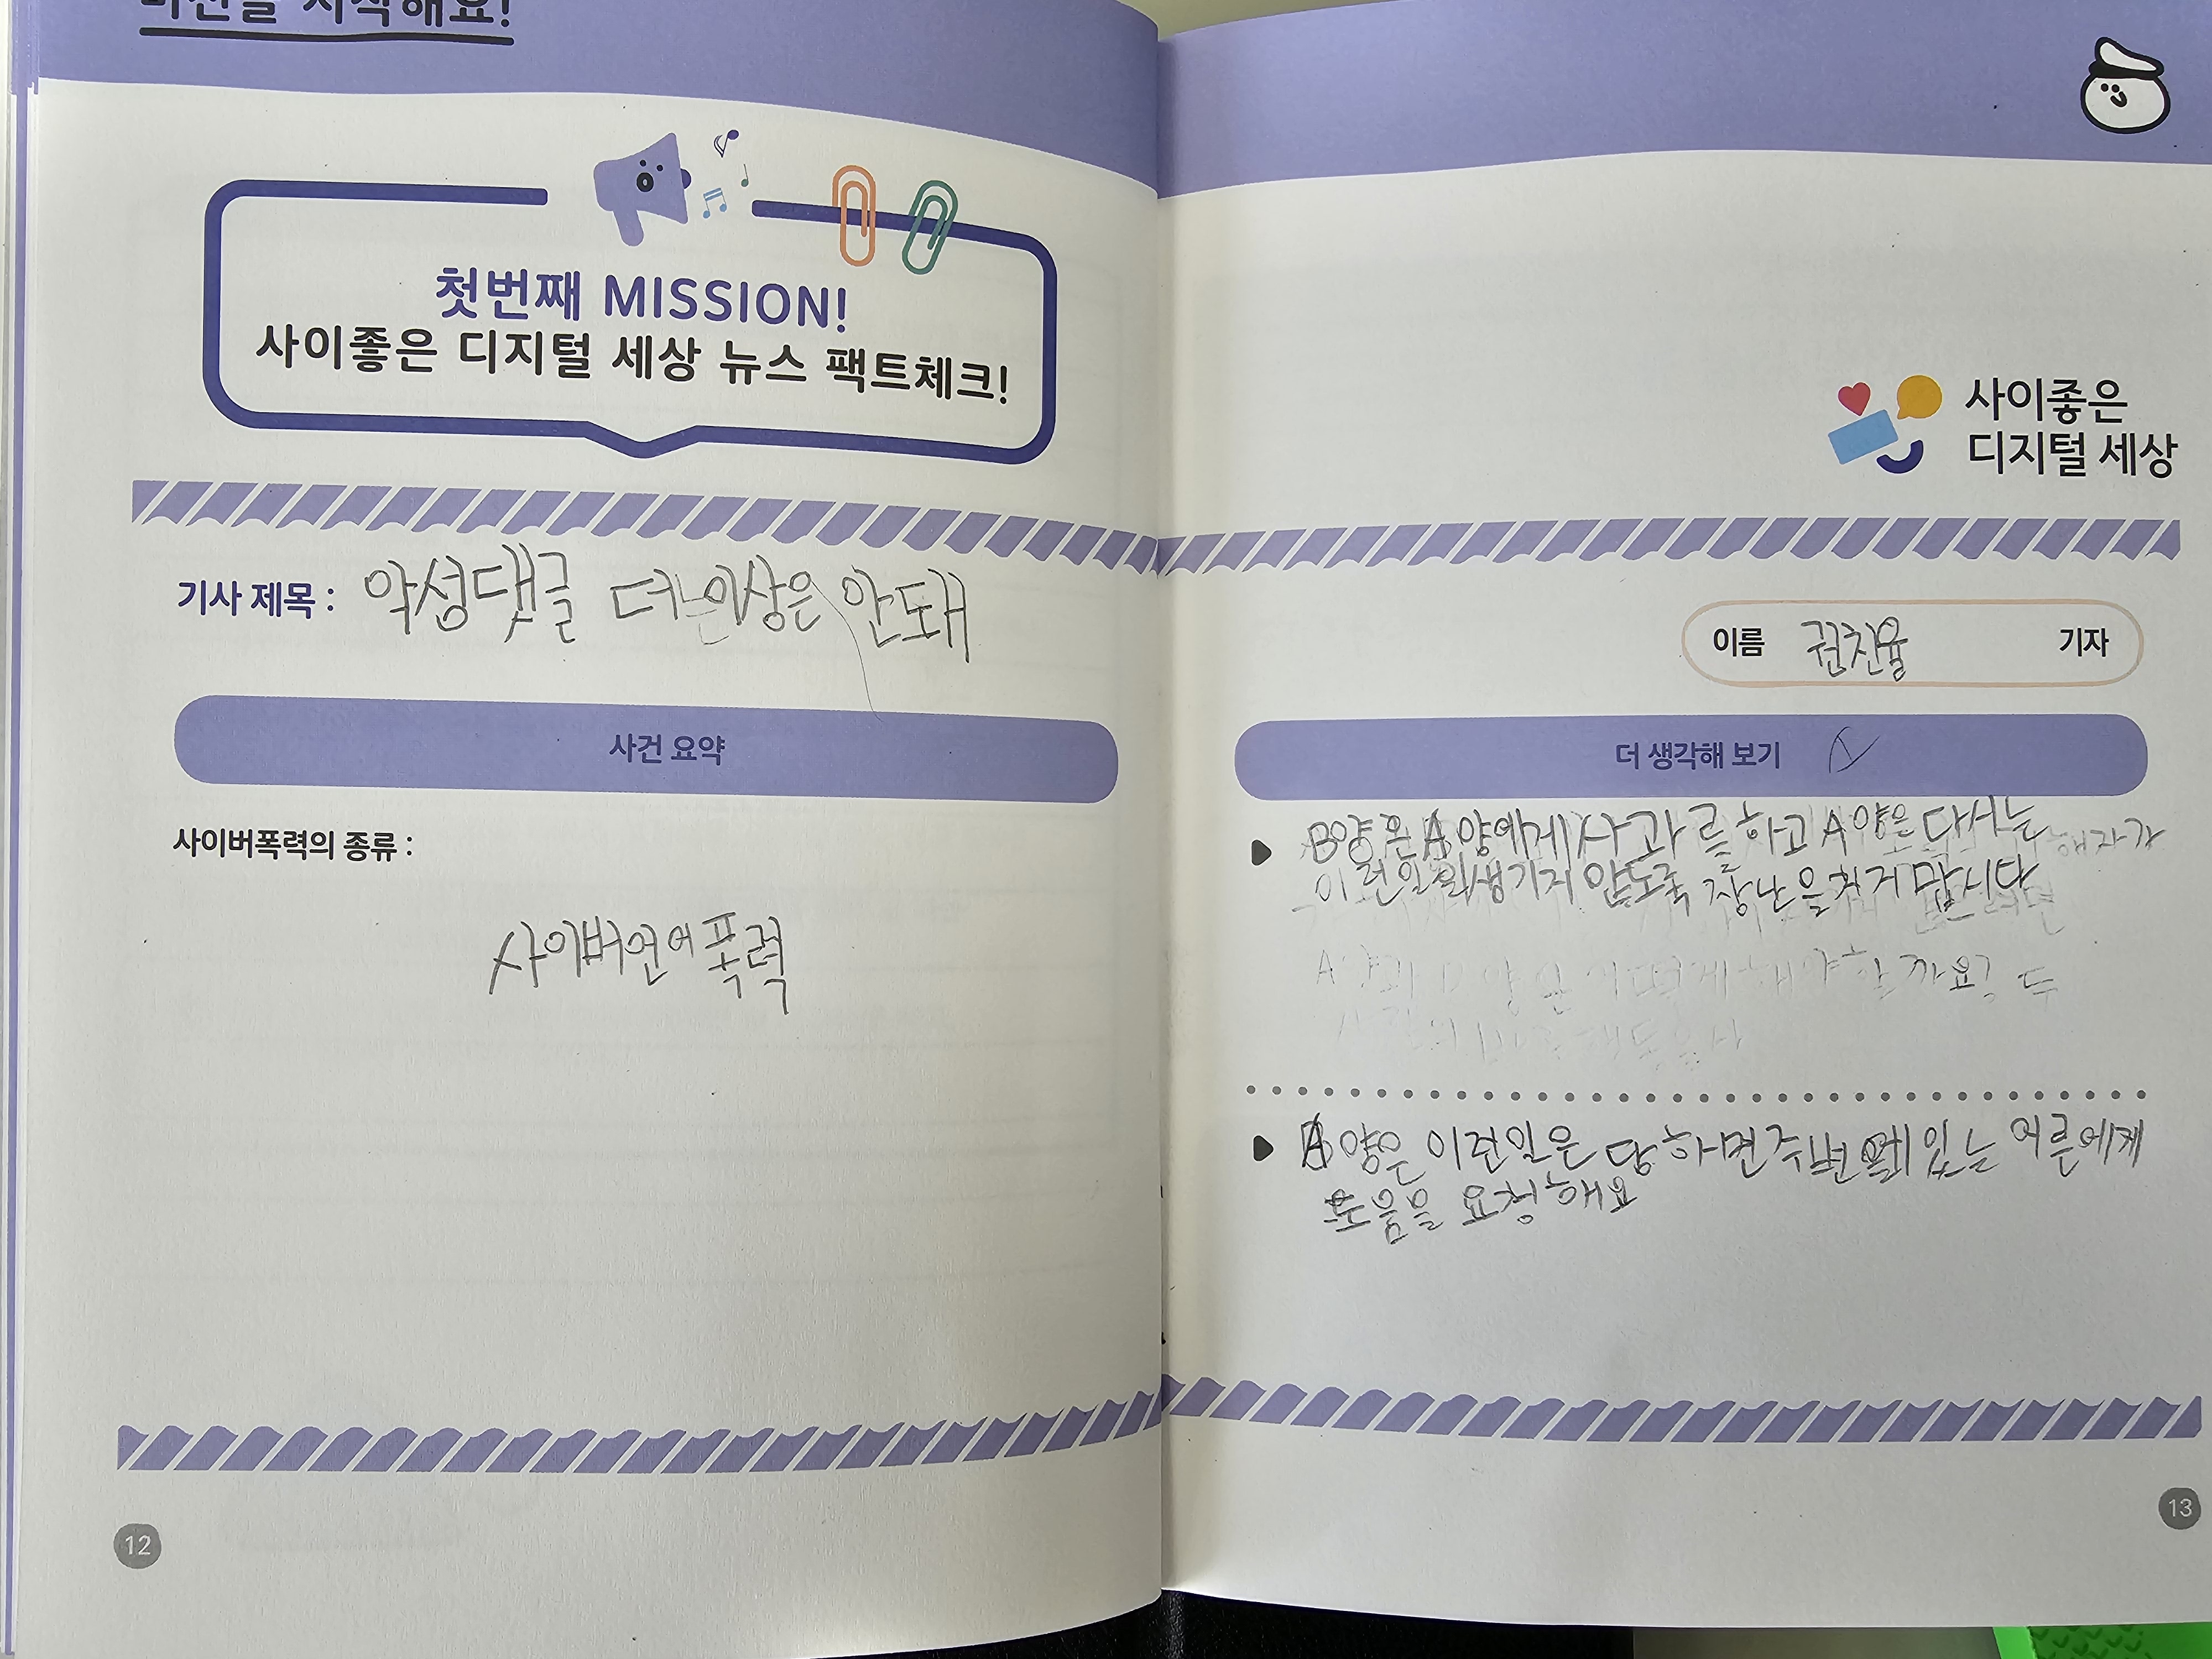 미션을 시작해요!
첫번째 MISSION!
사이좋은 디지털 세상 뉴스 팩트체크!
기사 제목 : 악성댓글 더는이상은 안돼
사건 요약
사이버폭력의 종류 :
사이버언어폭력
12
사이좋은
디지털 세상
이름 권찬율 기자
더 생각해 보기
B양은 A양에게 사과를 하고 A양은 다시는
이런일이 생기지 않도록 장난을 치지 맙시다
해자가
할까요? 두
A양은 이런일은 당하면 주변에 있는 어른에게
도움을 요청해요
13